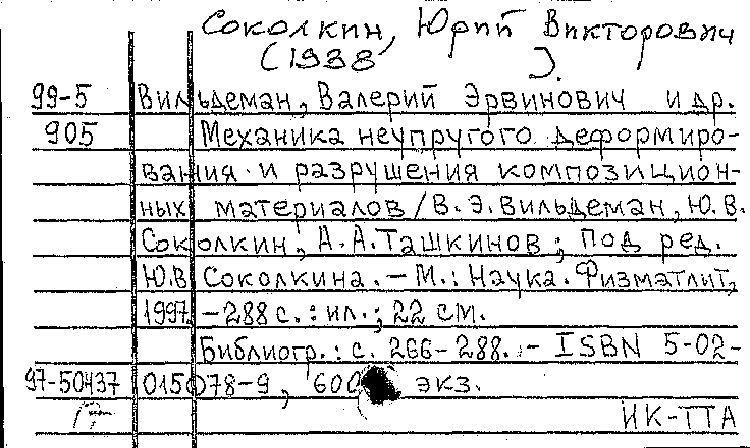 Соколкин, Юрий Викторович
(1938 ).
99-5 Вильдеман, Валерий Эрвинович и др.
905 Механика неупругого деформиро-
вания и разрушения композицион-
ных материалов / В. Э. Вильдеман, Ю. В.
Соколкин, А. А. Ташкинов ; Под ред.
Ю.В Соколкина. - М. : Наука. Физматлит,
1997. - 288 с. : ил. ; 22 см.
Библиогр. : с. 266-288. - ISBN 5-02-
97-50437 015078-9, 600 экз.
ИК-ТТА